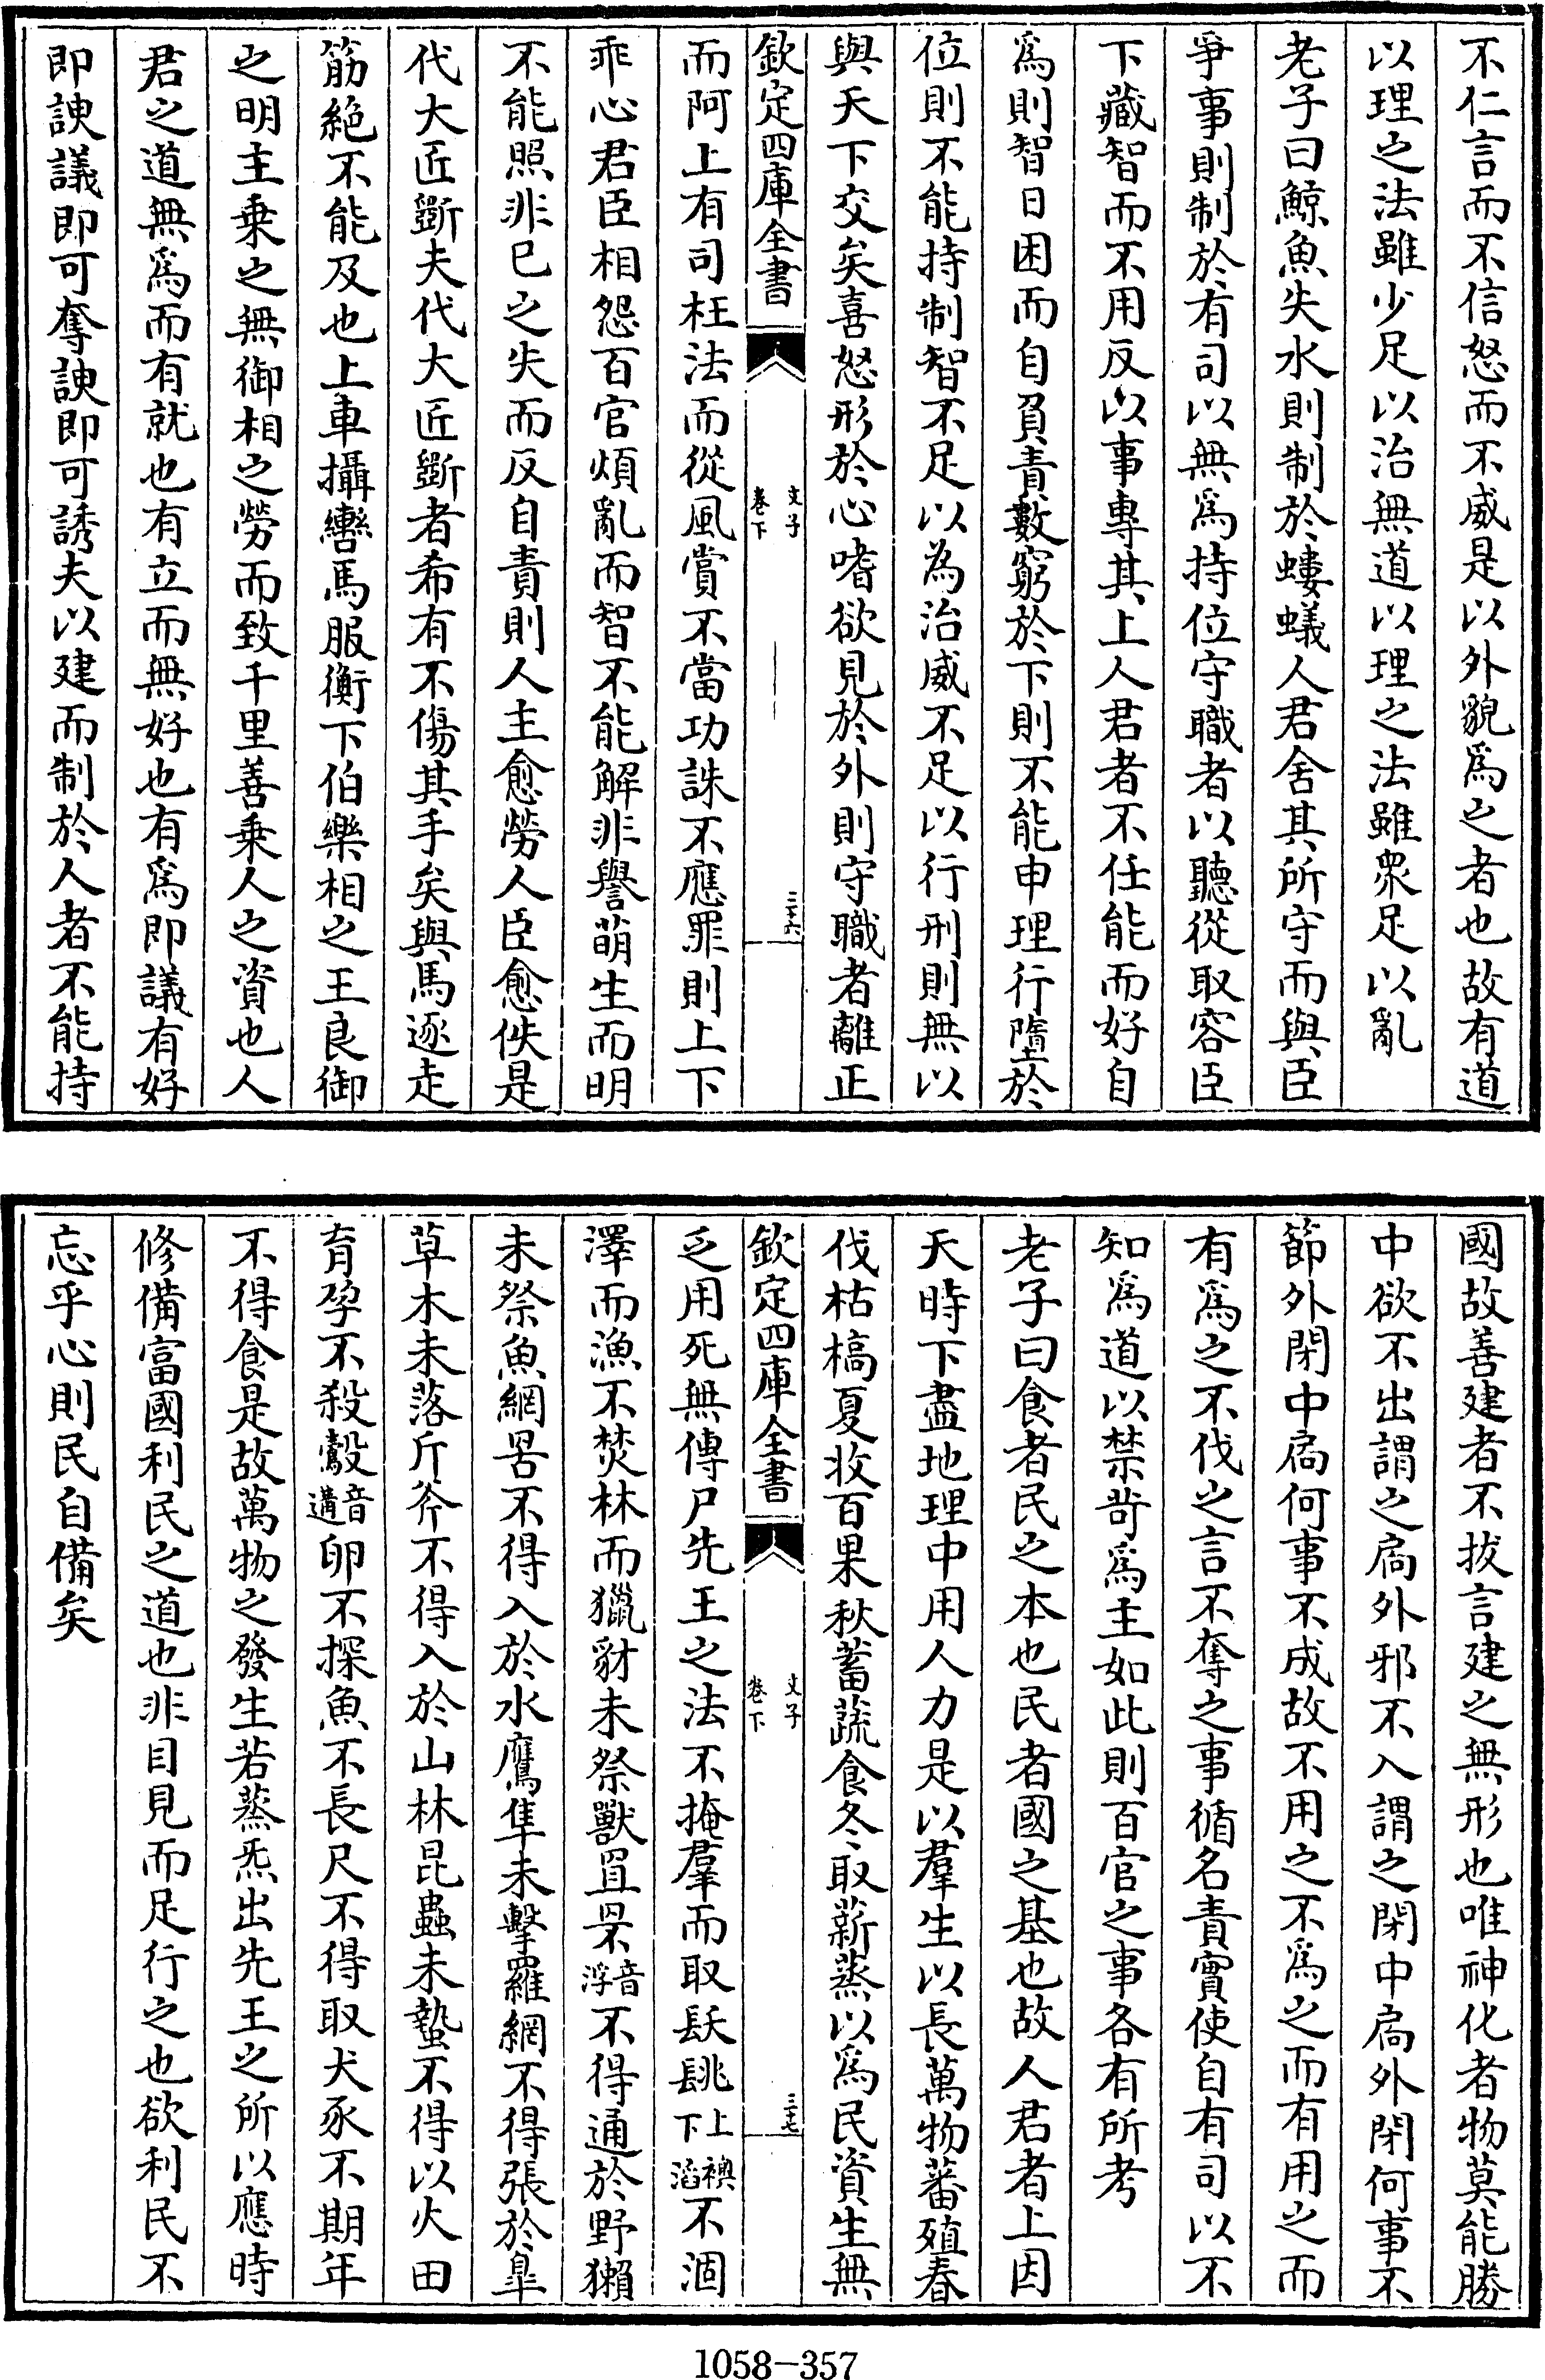 不仁言而不信怒而不威是以外貌爲之者也故有道
以理之法雖少足以治無道以理之法雖衆足以亂
老子曰鯨魚失水則制於螻蟻人君舍其所守而與臣
爭事則制於有司以無爲持位守職者以聽從取容臣
下藏智而不用反以事專其上人君者不任能而好自
爲則智日困而自負責數窮於下則不能申理行墮於
位則不能持制智不足以為治威不足以行刑則無以
與天下交矣喜怒形於心嗜欲見於外則守職者離正
欽定四庫全書
文子
卷下
三十六
而阿上有司枉法而從風賞不當功誅不應罪則上下
乖心君臣相怨百官煩亂而智不能解非譽萌生而明
不能照非已之失而反自責則人主愈勞人臣愈佚是
代大匠斵夫代大匠斵者希有不傷其手矣與馬逐走
筋絶不能及也上車攝轡馬服衡下伯樂相之王良御
之明主乗之無御相之勞而致千里善乗人之資也人
君之道無爲而有就也有立而無好也有爲即議有好
即諛議即可奪諛即可誘夫以建而制於人者不能持
國故善建者不拔言建之無形也唯神化者物莫能勝
中欲不出謂之扃外邪不入謂之閉中扃外閉何事不
節外閉中扃何事不成故不用之不爲之而有用之而
有爲之不伐之言不奪之事循名責實使自有司以不
知爲道以禁苛爲主如此則百官之事各有所考
老子曰食者民之本也民者國之基也故人君者上因
天時下盡地理中用人力是以羣生以長萬物蕃殖春
伐枯槁夏收百果秋蓄蔬食冬取薪蒸以爲民資生無
欽定四庫全書
文子
卷下
三十七
乏用死無傳尸先王之法不掩羣而取镺䠷上襖下滔不涸
澤而漁不焚林而獵豺未祭獸罝罘音浮不得通於野獺
未祭魚網罟不得入於水鷹隼未擊羅網不得張於皐
草木未落斤斧不得入於山林昆蟲未蟄不得以火田
育孕不殺鷇音遘卵不探魚不長尺不得取犬豕不期年
不得食是故萬物之發生若蒸炁出先王之所以應時
修備富國利民之道也非目見而足行之也欲利民不
忘乎心則民自備矣
1058-357